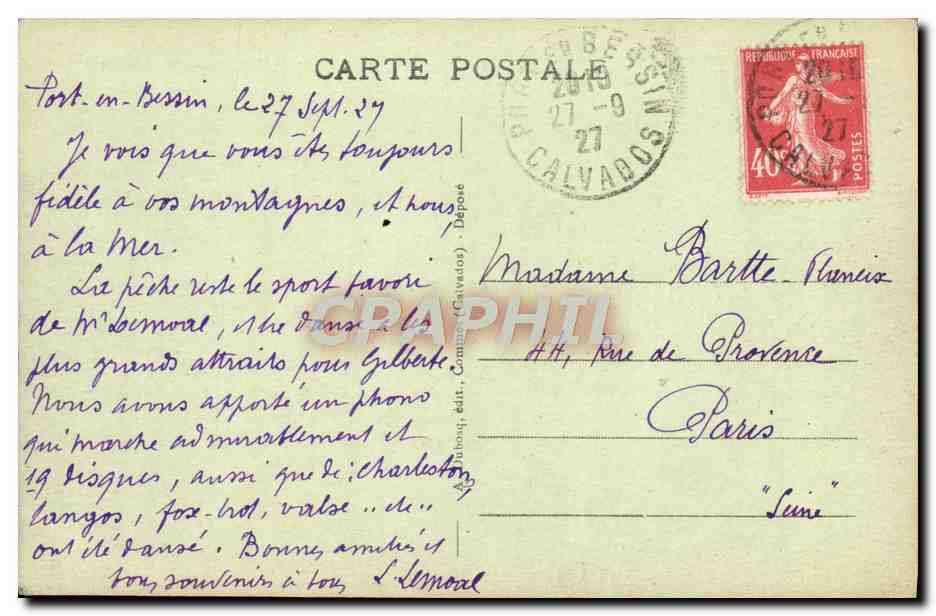 CARTE POSTALE
Port-en-Bessin, le 27 Sept. 27
Je vois que vous êtes toujours
fidèle à vos montagnes, et nous,
à la Mer.
La pêche reste le sport favori
de Mr Lemoal, et la danse a les
plus grands attraits pour Gilberte.
Nous avons apporté un phono
qui marche admirablement et
19 disques, aussi que de charleston,
tangos, fox-trot, valse "etc"
ont été dansé. Bonnes amitiés et
bons souvenirs à tous L Lemoal
A. Dubosq, édit., Commes (Calvados) - Déposé
PORT EN BESSIN
20 19
27 -9
27
CALVADOS
REPUBLIQUE FRANÇAISE
40c
POSTES
Madame Bartte-Planeix
44, Rue de Provence
Paris
"Seine"
CPAPHIL